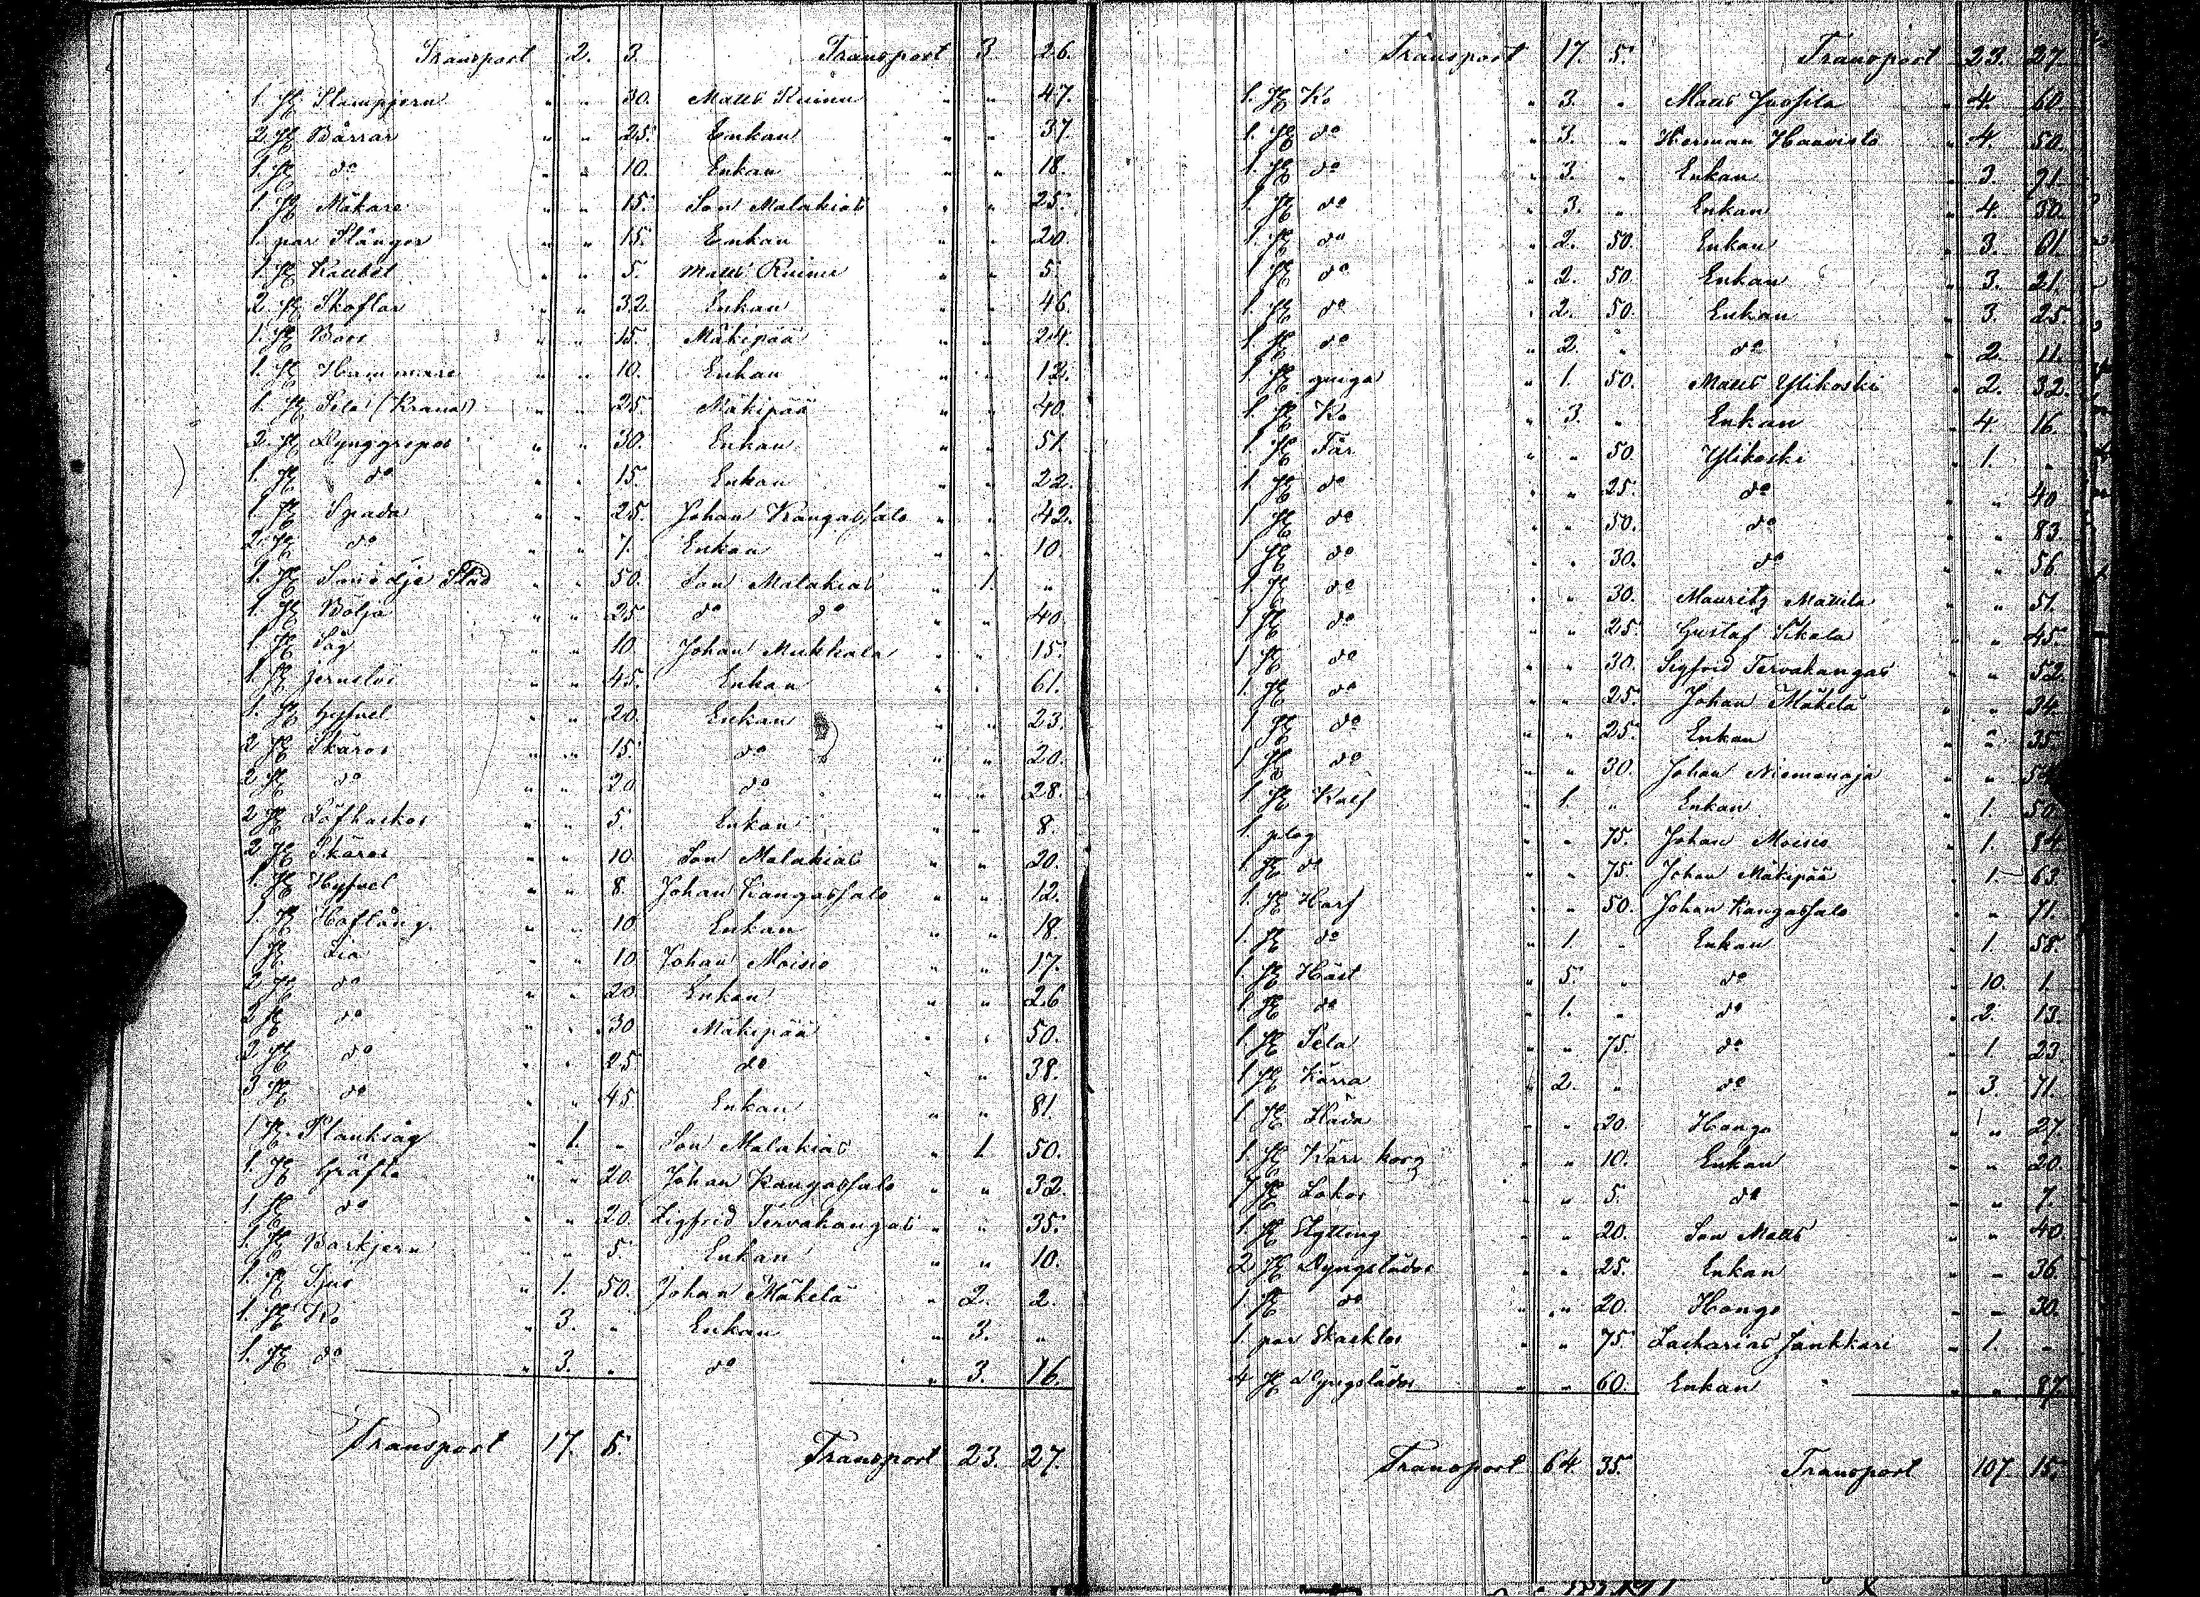 Transport 2. 3. Transport 3. 26.
1. St Stampjern " " 30. Matts Ruimu " " 47.
2 St Bårrar " " 25. Enkan " " 37.
1. St do " " 10. Enkan " " 18.
1. St Måkare " " 15. Son Malakias " " 25.
1. par Stänger " " 15. Enkan " " 20.
1. St " " 5. Matts Ruimu " " 5.
2 St Skoflar " " 32. Enkan " " 46.
1. St Bors " " 15. Mäkipää " " 24.
1. St Hammare " " 10. Enkan " " 12.
1. St Sela (Kranas) " " 25. Mäkipää " " 40.
2. St Dynggrepar " " 30. Enkan " " 51.
1. St do " " 15. Enkan " " 22.
1. St Spada " " 25. Johan Kangassalo " " 42.
2. St do " " 7. Enkan " " 10.
1. St Städ " " 50. Son Malakias " 1. "
1. St Bölja " " 25 do do " " 40.
1. St Såg " " 10. Johan Mukkala " " 15.
1. St jernslöe " " 45. Enkan " " 61.
1. St hyfvel " " 20. Enkan " " 23.
2 St Skäror " " 15. do " " 20.
2 St do " " 20 do " " 28.
2 St Löfhaskor " " 5. Enkan " " 8.
2 St Skäror " " 10. Son Malakias " " 20.
1. St Hyfvel " " 8. Johan Kangassalo " " 12.
1. St Hoftång " " 10 Enkan " " 18.
1 St Lia " " 10 Johan Moisio " " 17.
2 St do " " 20 Enkan " " 26
2 St do " " 30 Mäkipää " " 50.
2 St do " " 25 do " " 38.
3 St do " " 45 Enkan " " 81.
1 St Planksåg " 1. " Son Malakias " 1. 50.
1. St Gräfta " " 20. Johan Kangassalo " " 32.
1 St do " " 20. Zigfrid Tervakangas " " 35.
1. St Barkjern " " 5 Enkan " " 10.
1. St Tjur " 1. 50. Johan Mäkelä " 2. 2.
1. St Ko " 3. " Enkan " 3. "
1. St do " 3. " do " 3. 16.
Transport 17. 5. Transport 23. 27.
Transport 17. 5. Transport 23. 27.
1. St Ko " 3. " Matts Jussila " 4. 60.
1. St do " 3. " Herman Haavisto " 4. 50.
1. St do " 3. " Enkan " 3. 91.
1. St do " 3. " Enkan " 4. 30.
1. St do " 2. 50. Enkan " 3. 61.
1 St do " 2. 50. Enkan " 3. 21.
1 St do " 2. 50. Enkan " 3. 25.
1 St do " 2. " do " 2. 11.
1 St qviga " 1. 50. Matts Ylikoski " 2. 32.
1. St Ko " 3. " Enkan " 4. 16.
1. St Får " " 50. Ylikoski " 1. "
1. St do " " 25. do " " 40
1 St do " " 50. do " " 83.
1 St do " " 30. do " " 56
1. St do " " 30. Mauritz Mattila " " 51.
1 St do " " 25. Gustaf Sikala " " 45.
1 St do " " 30. Sigfrid Tervakangas " " 52
1. St do " " 25. Johan Mäkelä " " 34.
1 St do " " 25. Enkan " " 35.
1 St do " " 30. Johan Niemenaja " "
1 St Kalf " 1. " Enkan " 1. 50.
1. plog " " 75. Johan Moisio " 1. 84
1 St do " " 75. Johan Mäkipää " 1. 63.
1. St Harf " " 50. Johan Kangassalo " " 71.
1. St do " 1. " Enkan " 1. 58.
1. St Häst " 5. " do " 10. 1.
1. St do " 1. " do " 2. 13.
1 St Sela " " 75. do " 1. 23.
1 St Kärra " 2. " do " 3. 71.
1 St Släda " " 20. Hango " " 27.
1. St Kärr korg " " 10. Enkan " " 20.
7 St Lokor " " 5. do " " 7.
1. St Skytting " " 20. Son Matts " " 40.
2 St Dyngslädor " " 25. Enkan " " 36.
1 St do " " 20. Hango " " 30.
1. par Skacklor " " 75. Zacharias Jankkari " 1. "
4 St Dyngslädor " " 60. Enkan " " 87.
Transport 64. 35. Transport 107. 15.